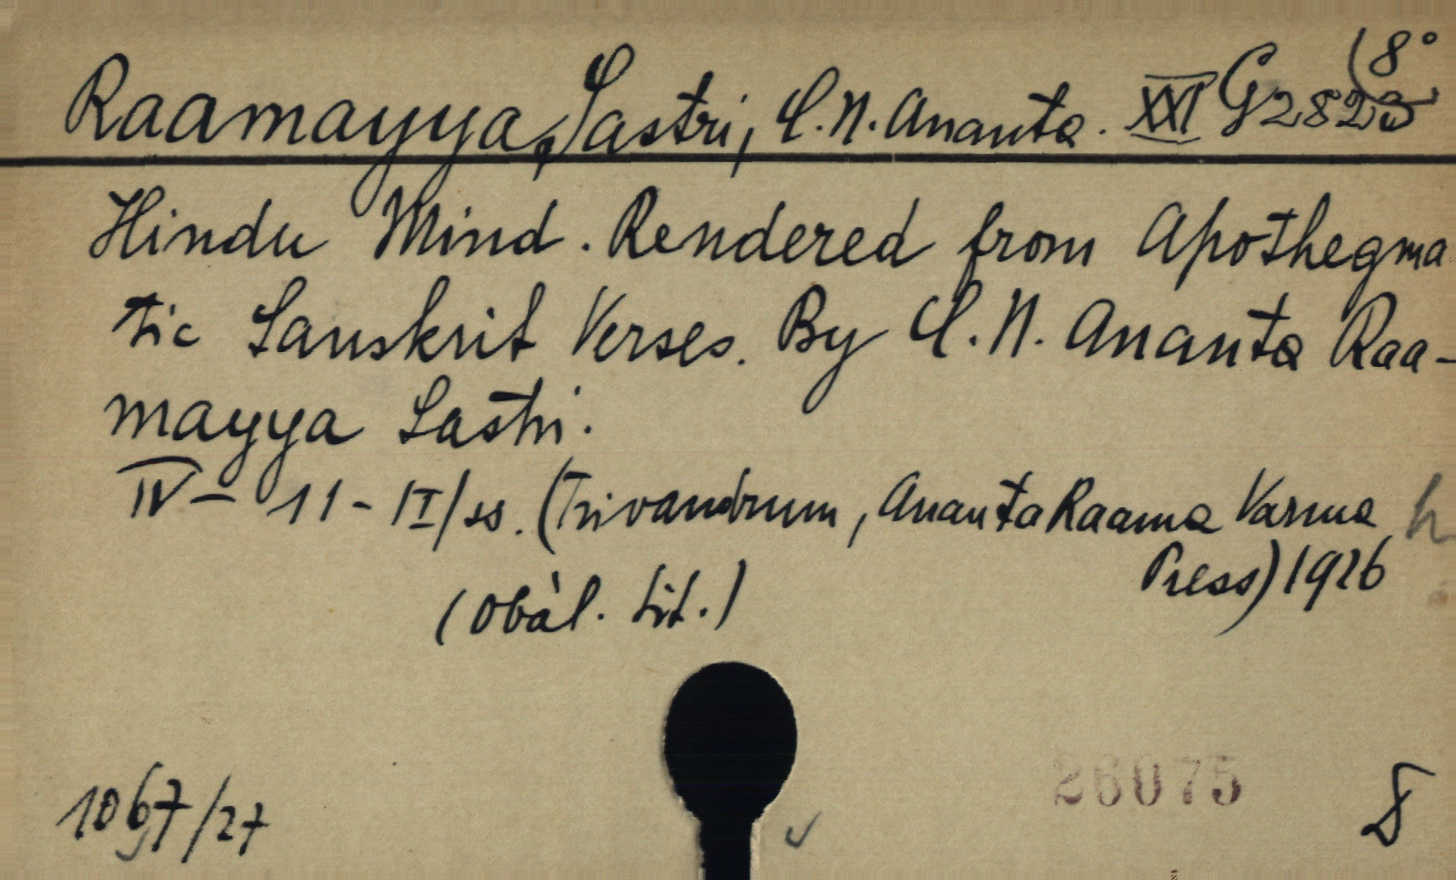 (8°
Raamayya Sastri, C.N. Ananta. XXI G 2823
Hindu Mind. Rendered from Apothegma
tic Sanskrit Verses. By C.N. Ananta Raa-
mayya Sastri.
IV - 11 - II/ss. (Trivandrum, Ananta Raama Varma
Press) 1926
(Obál. tit.)
26075
1067/27